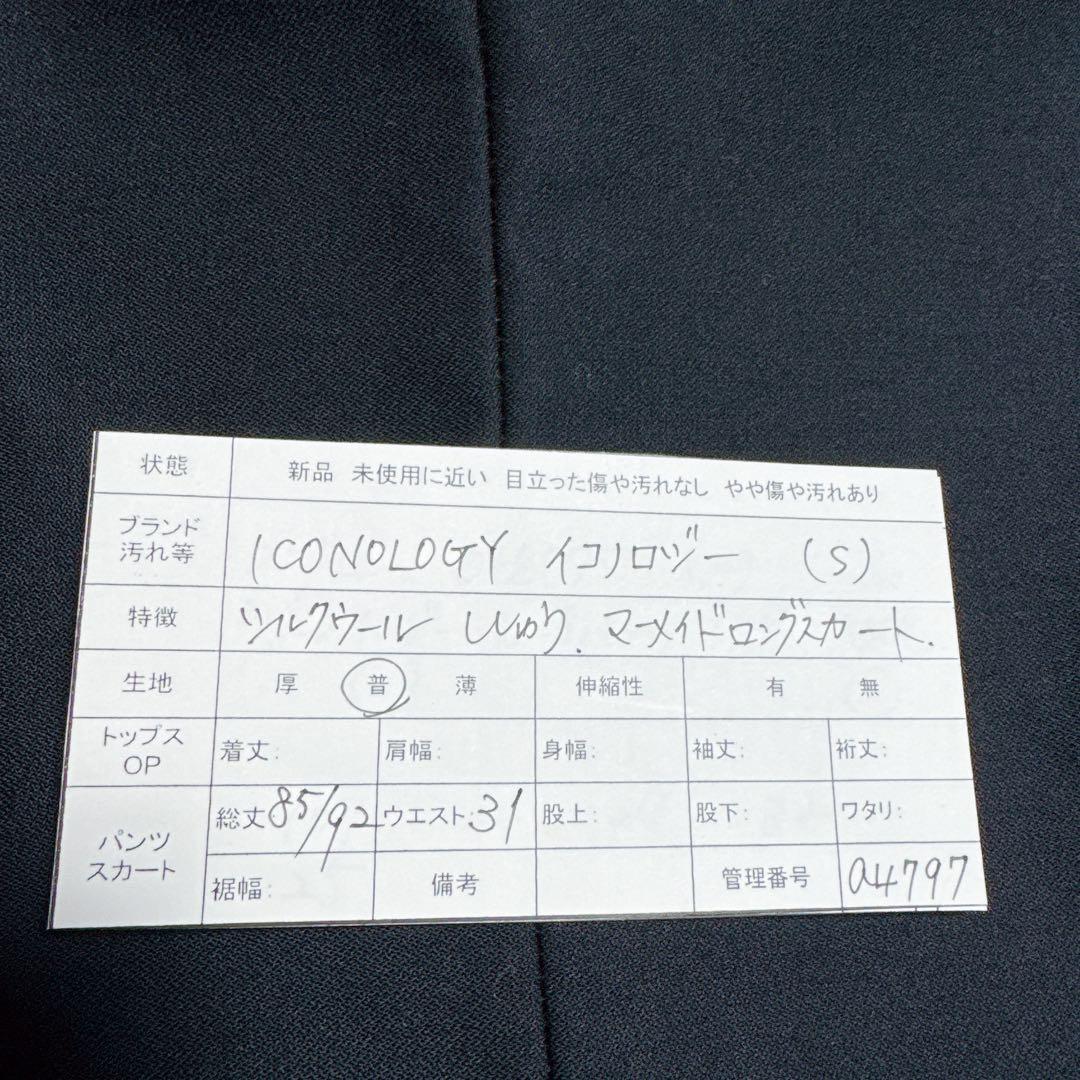 状態 新品 未使用に近い 目立った傷や汚れなし やや傷や汚れあり
ブランド
汚れ等 ICONOLOGY イコノロジー (S)
特徴 シルクウール ししゅう. マーメイドロングスカート.
生地 厚 普 薄 伸縮性 有 無
トップス
OP 着丈: 肩幅: 身幅: 袖丈: 裄丈:
パンツ
スカート 総丈 85/92 ウエスト: 31 股上: 股下: ワタリ:
裾幅: 備考 管理番号 a4797